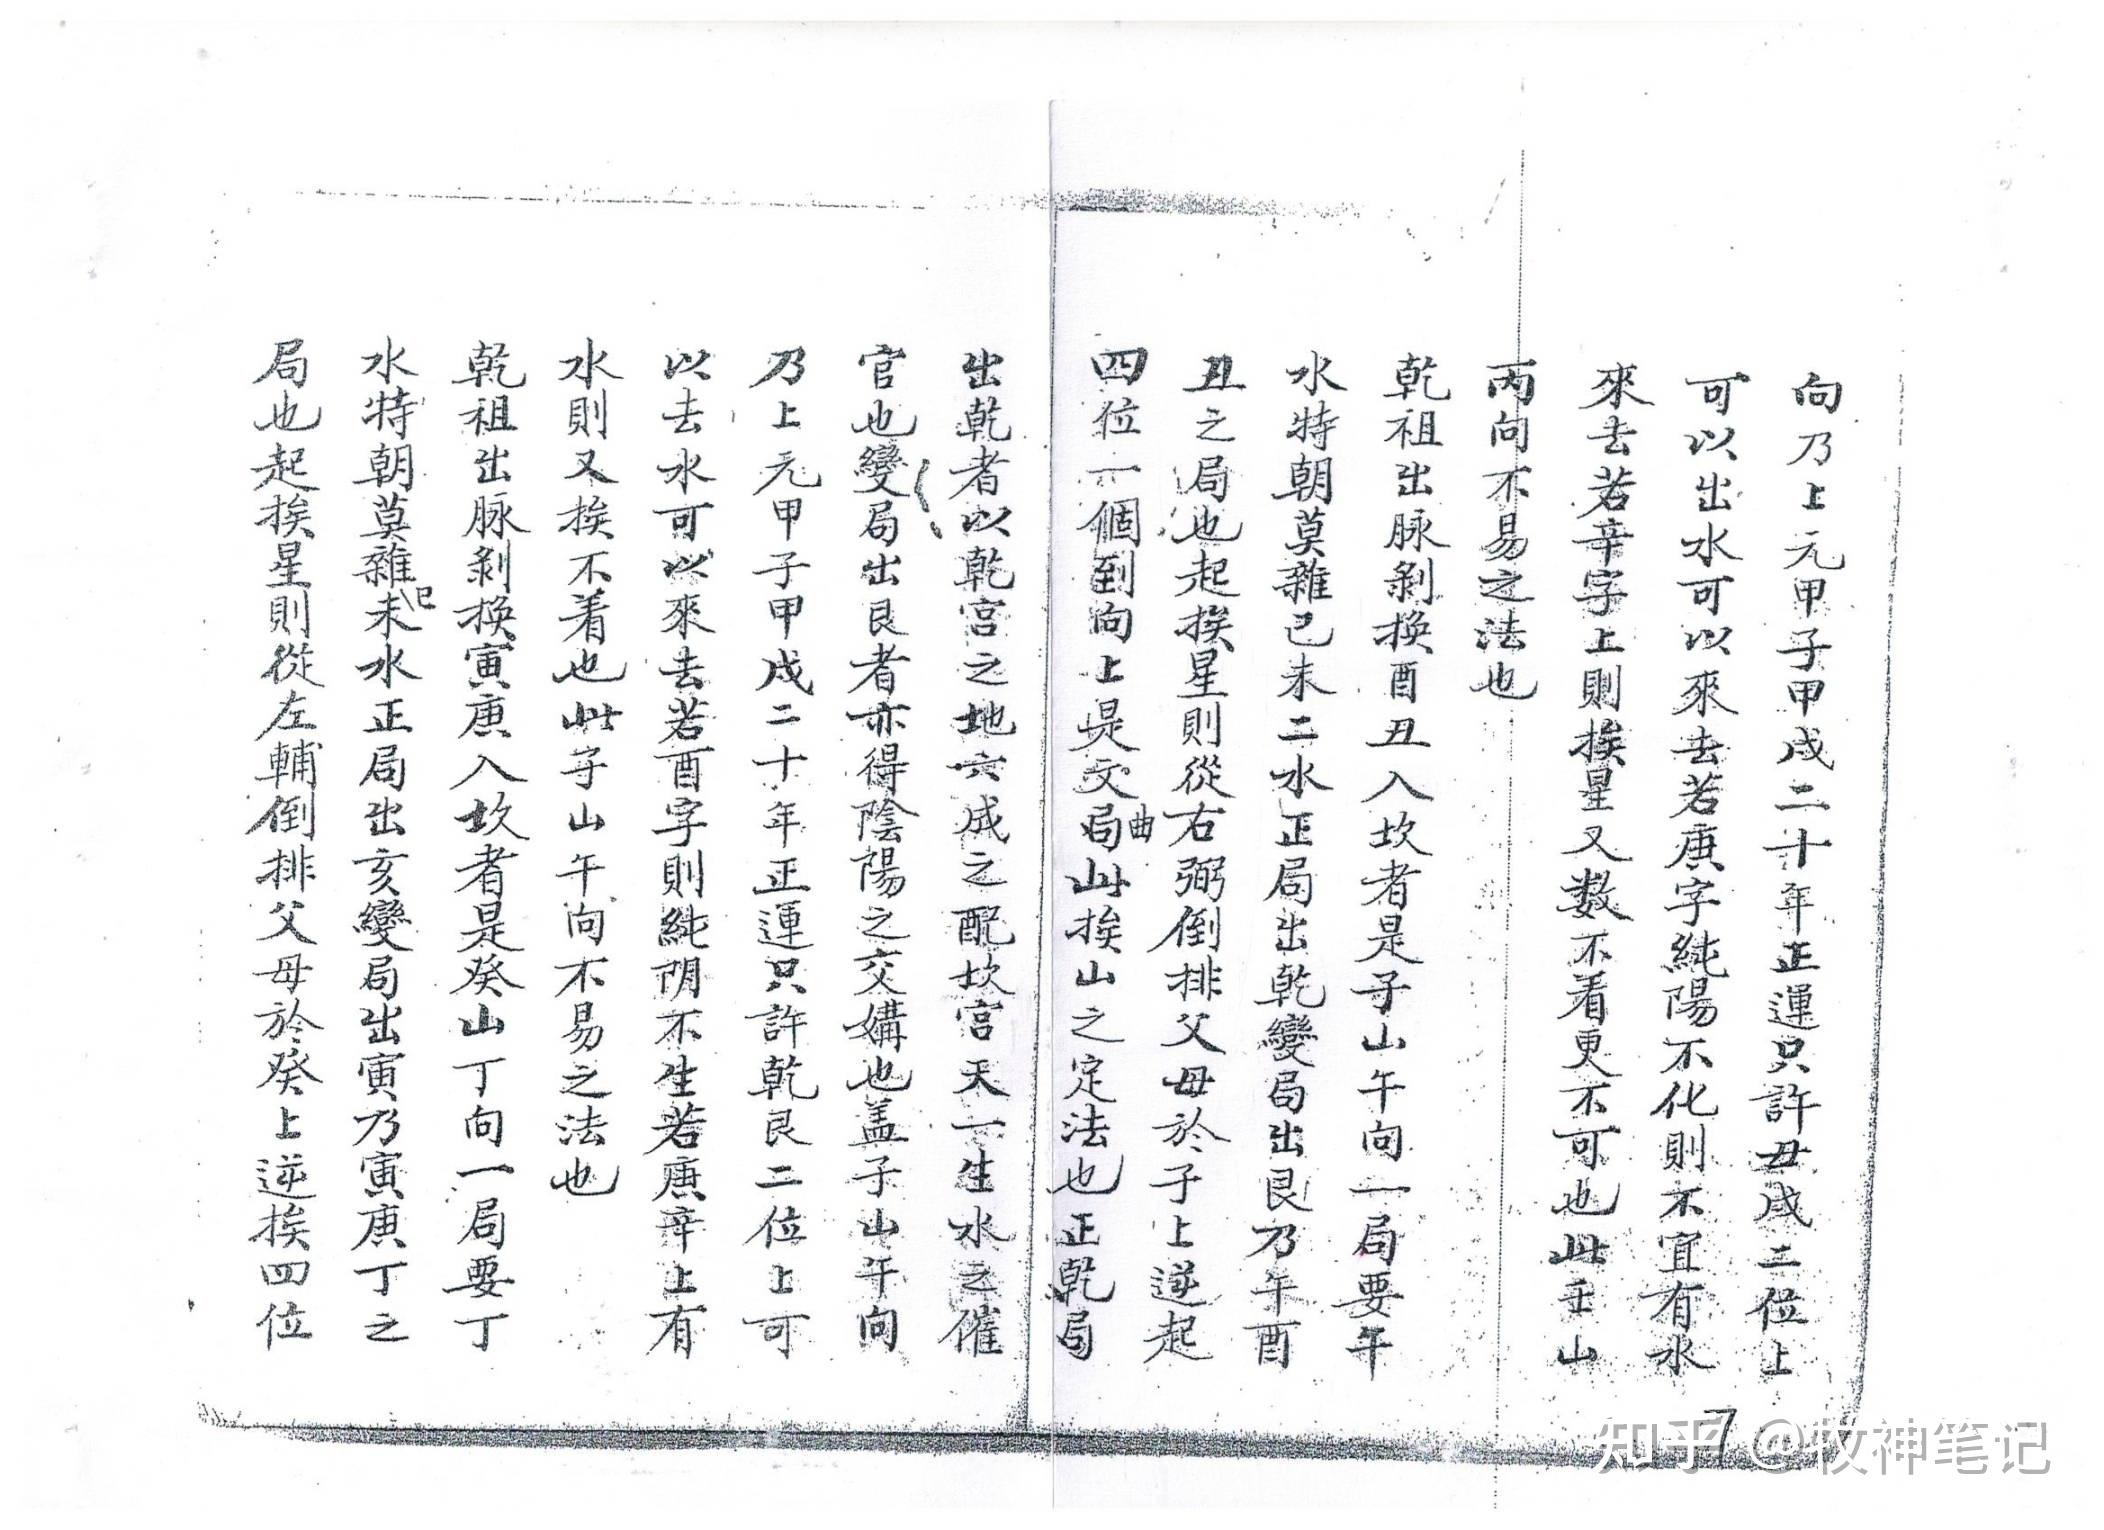 向乃上元甲子甲戌二十年正運只許丑戌二位上
可以出水可以來去若庚字純陽不化則不宜有水
來去若辛字上則挨星又数不着更不可也此壬山
丙向不易之法也
乾祖出脉剝換酉丑入坎者是子山午向一局要午
水特朝莫雜己未二水正局出乾變局出艮乃午酉
丑之局也起挨星則從右弼倒排父母於子上逆起
四位一個到向上是文曲局此挨山之定法也正乾局
出乾者以乾宮之地六成之配坎宮天一生水之催
官也變局出艮者亦得陰陽之交媾也盖子山午向
乃上元甲子甲戌二十年正運只許乾艮二位上可
以去水可以來去若酉字則純阴不生若庚辛上有
水則又挨不着也此子山午向不易之法也
乾祖出脉剝換寅庚入坎者是癸山丁向一局要丁
水特朝莫雜未巳水正局出亥變局出寅乃寅庚丁之
局也起挨星則從左輔倒排父母於癸上逆挨四位
7
知乎 @牧神笔记